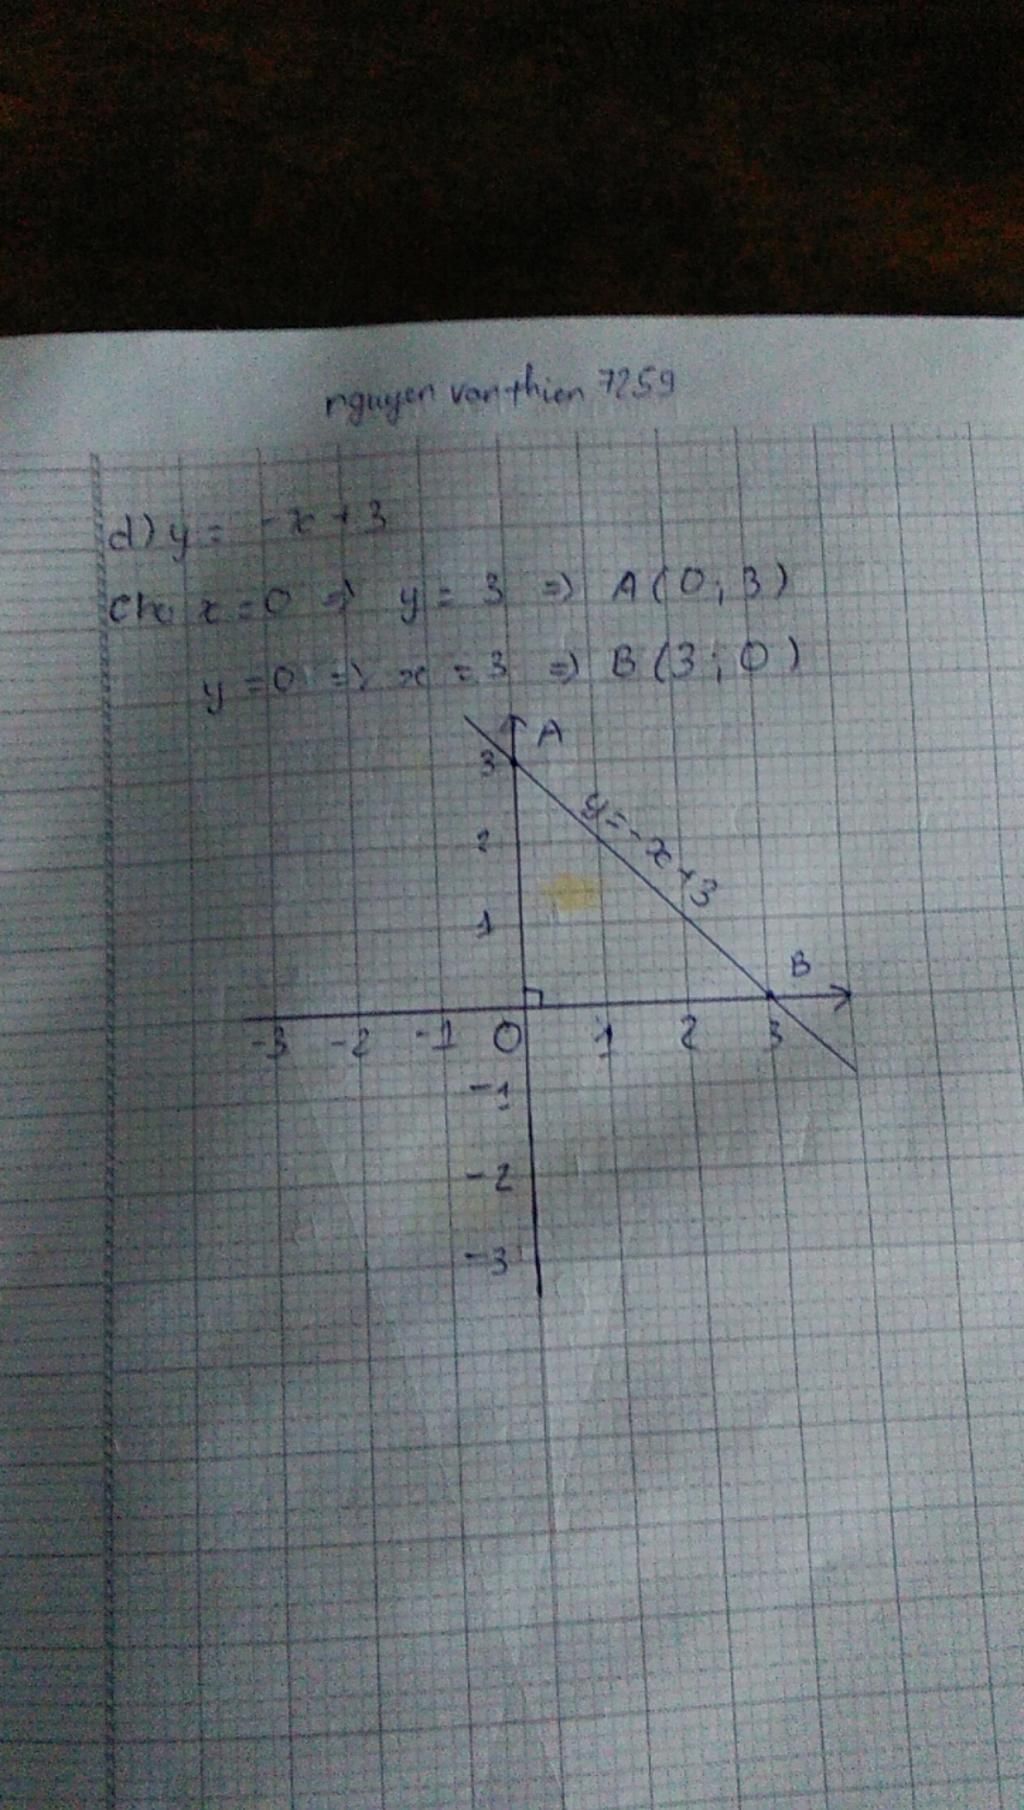 nguyen van thien 7259
d) y = -x + 3
Cho x = 0 => y = 3 => A ( 0 ; 3 )
y = 0 => x = 3 => B ( 3 ; 0 )
A
3
y = -x + 3
2
1
B
-3 -2 -1 0 1 2 3
-1
-2
-3